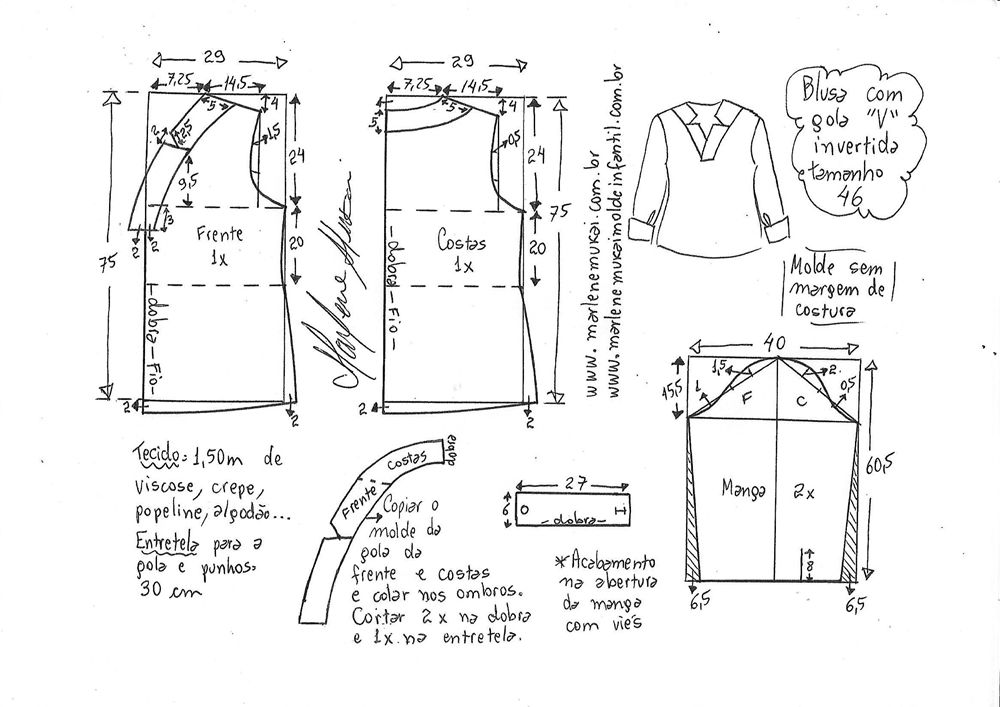 Blusa com
gola "V"
invertida
tamanho
46
Molde sem
margem de
costura
29
7,25
14,5
5
4
2
2,5
1,5
24
9,5
3
2
2
Frente
1x
20
75
dobra-Fio
2
2
Marlene Mukai
29
7,25
14,5
5
4
5
0,5
24
Costas
1x
20
75
dobra-Fio
2
2
www.marlenemukai.com.br
www.marlenemukaimoldeinfantil.com.br
40
1,5
2
15,5
1
F
C
0,5
Manga
2x
60,5
8
6,5
6,5
Tecido: 1,50m de
viscose, crepe,
popeline, algodão...
Entretela para a
gola e punhos.
30 cm
Costas
dobra
Frente
Copiar o
molde da
gola da
frente e costas
e colar nos ombros.
Cortar 2x na dobra
e 1x na entretela.
27
6
dobra
*Acabamento
na abertura
da manga
com viés